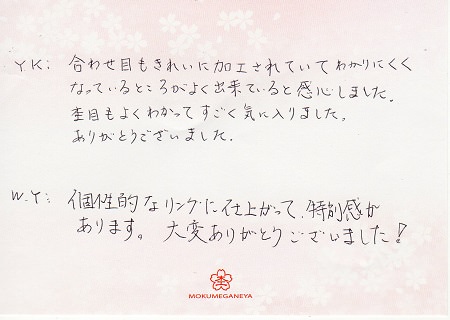 Y.K: 合わせ目もきれいに加工されていてわかりにくく
なっているところがよく出来ていると感心しました。
杢目もよくわかってすごく気に入りました。
ありがとうございました.
W.Y: 個性的なリングに仕上がって、特別感が
あります。大変ありがとうございました!
杢
MOKUMEGANEYA